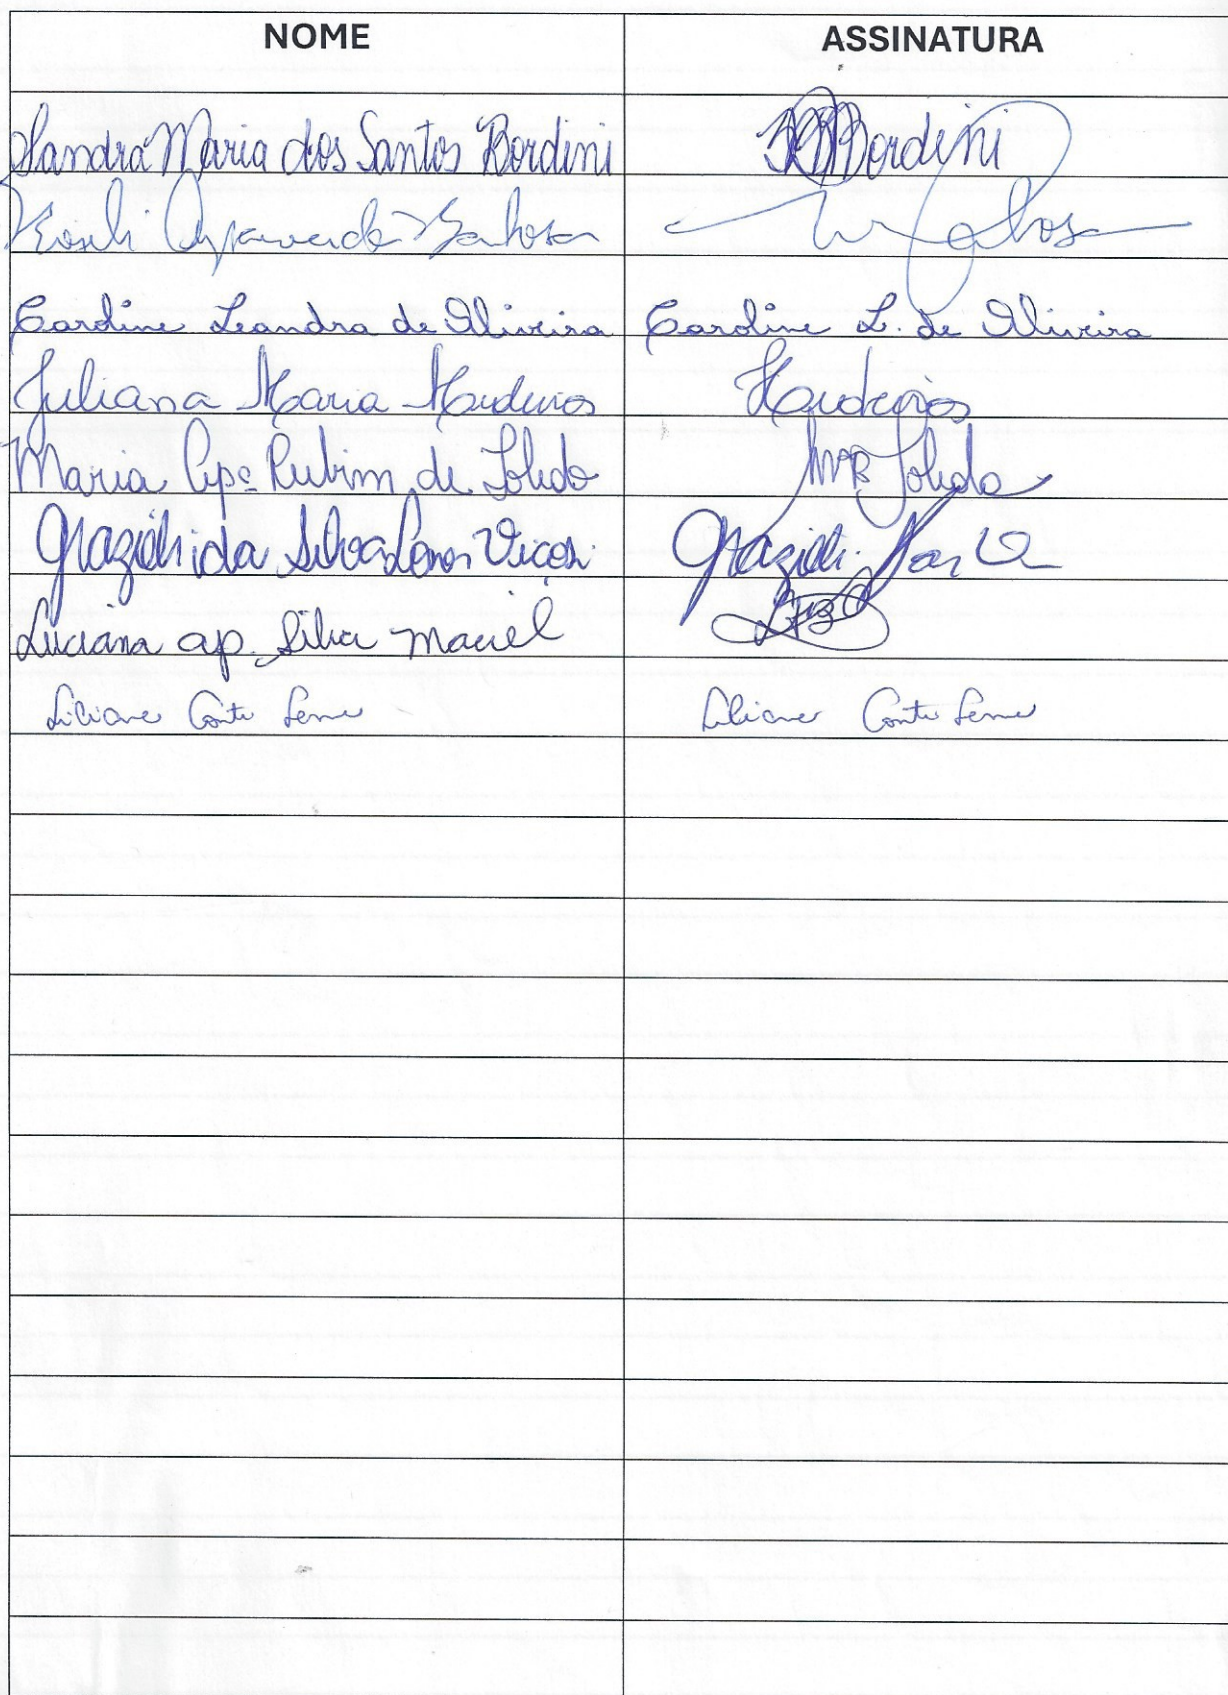 NOME ASSINATURA
Sandra Maria dos Santos Bordini Bordini
Roseli Aparecida Barbosa
Caroline Leandra de Oliveira Caroline L. de Oliveira
Juliana Maria Medeiros Medeiros
Maria Apª Rubim de Toledo MAR Toledo
Grazieli da Silva Vicari Grazieli
Luciana ap. Silva Maciel
Liliane Conti Leme Liliane Conti Leme